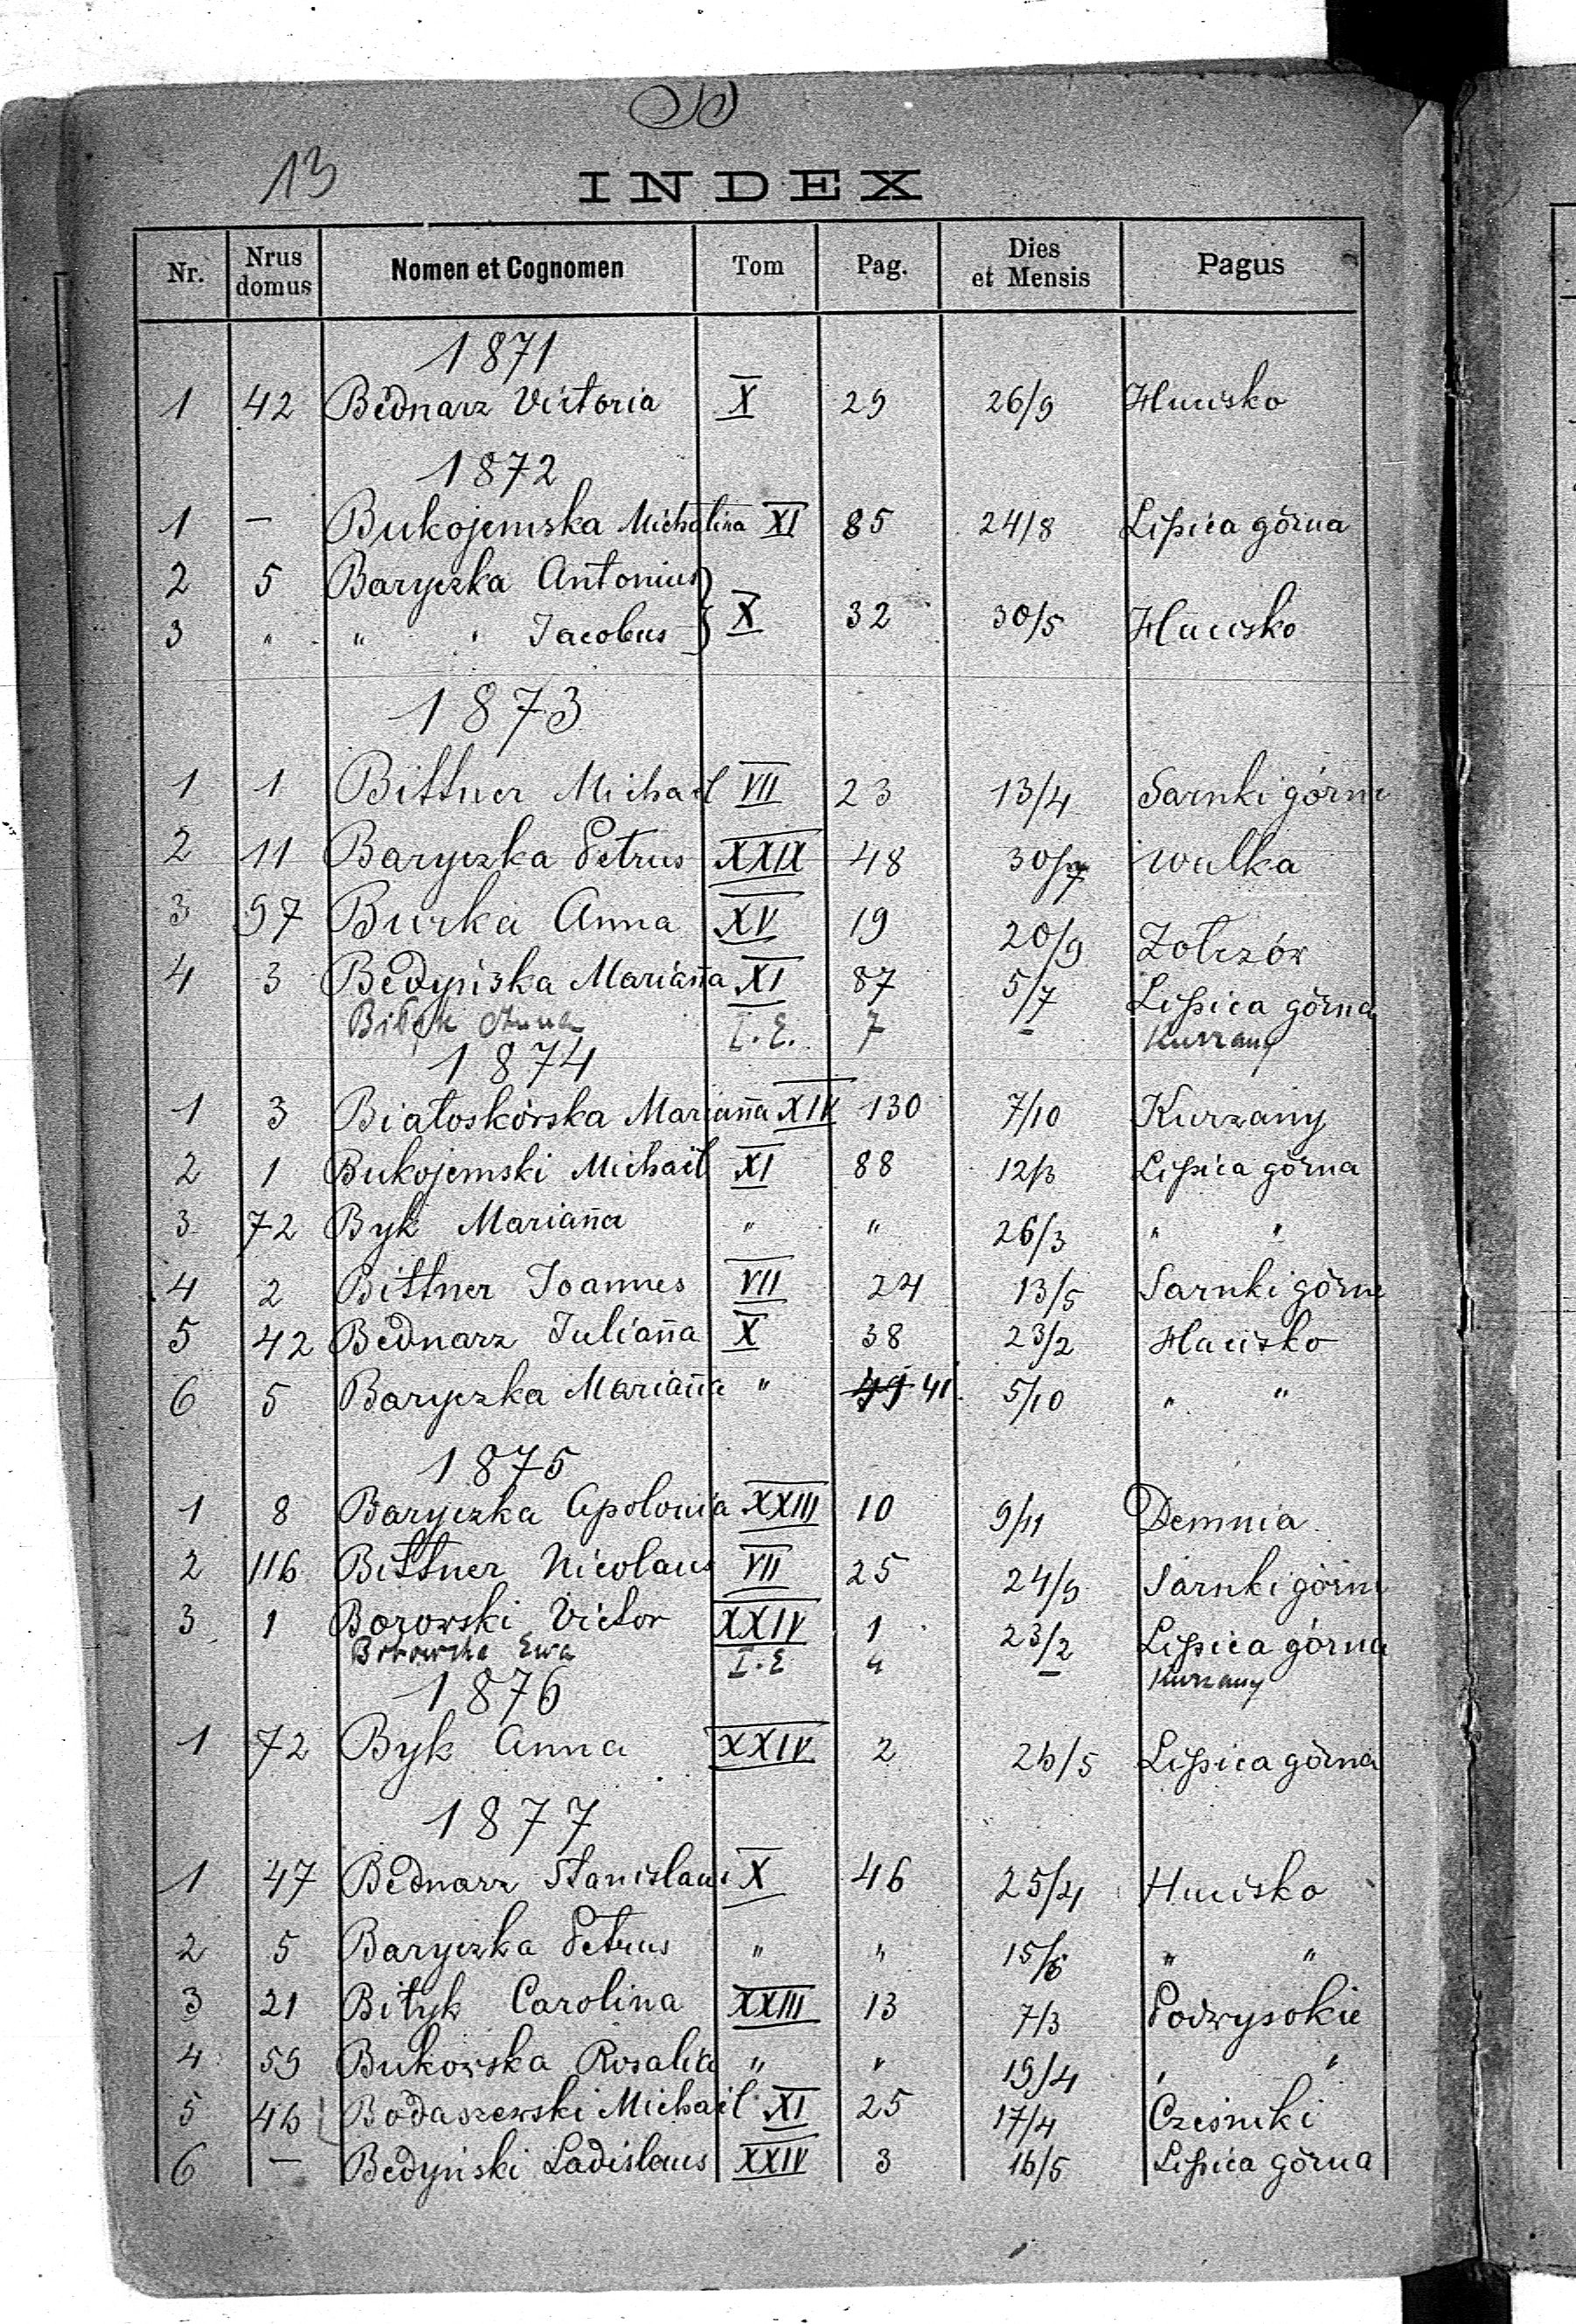 13
INDEX
Nr. Nrus domus Nomen et Cognomen Tom Pag. Dies et Mensis Pagus
1871
1 42 Bednarz Victoria X 29 26/9 Hucisko
1872
1 — Bukojemska Michalina XI 85 24/8 Lipica górna
2 5 Baryczka Antonius
3 " " " Jacobus } X 32 30/5 Hucisko
1873
1 1 Bittner Michael VII 23 13/4 Sarnki górne
2 11 Baryczka Petrus XXIX 48 30/7 Wulka
3 97 Burka Anna XV 19 20/9 Zolczów
4 3 Bedyńska Mariana XI 87 5/7 Lipica górna
Anna I.E. 7 – Kurzany
1874
1 3 Białoskórska Mariana XIV 130 7/10 Kurzany
2 1 Bukojemski Michail XI 88 12/3 Lipica górna
3 72 Byk Mariana " " 26/3 " "
4 2 Bittner Joannes VII 24 13/5 Sarnki górne
5 42 Bednarz Juliana X 38 23/2 Hucisko
6 5 Baryczka Mariana " 41 5/10 " "
1875
1 8 Baryczka Apolonia XXIII 10 9/11 Demnia
2 116 Bittner Nicolaus VII 25 24/9 Sarnki górne
3 1 Borowski Victor XXIV 1 23/2 Lipica górna
Borowska Ewa I.E 4 – Kurzany
1876
1 72 Byk Anna XXIV 2 26/5 Lipica górna
1877
1 47 Bednarz Stanislaus X 46 25/4 Hucisko
2 5 Baryczka Petrus " " 15/6 " "
3 21 Bityk Carolina XXIII 13 7/3 Podwysokie
4 59 Bukowska Rosalia " " 19/4 " "
5 46 Bodaszewski Michail XI 25 17/4 Cześniki
6 — Bedyński Ladislaus XXIV 3 16/5 Lipica górna